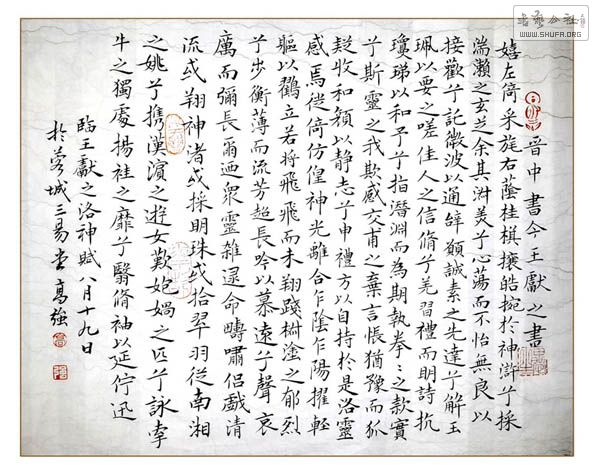 书艺公社
WWW.SHUFA.ORG
晉中書令王獻之書
嬉左倚采旄右蔭桂棋攘皓捥於神滸兮採
湍瀨之玄芝余其淋美兮心蕩而不怡無良以
接歡兮託微波以通辭願誠素之先達兮解玉
珮以要之嗟佳人之信脩兮羌習禮而明詩抗
瓊珶以和予兮指潛淵而為期執拳〻之款實
兮斯靈之我欺感交甫之棄言悵猶豫而狐
疑收和顏以靜志兮申禮方以自持於是洛靈
感焉徙倚仿偟神光離合乍陰乍陽擢輕
軀以鶴立若將飛飛而未翔踐椒塗之郁烈
兮步衡薄而流芳超長吟以慕遠兮聲哀
厲而彌長爾迺眾靈雜遝命疇嘯侶戲清
流或翔神渚或採明珠或拾翠羽從南湘
之姚兮攜漢濱之遊女歎匏媧之匹兮詠牽
牛之獨處揚袿之靡兮翳脩袖以延佇迅
臨王獻之洛神賦八月十九日
於蓉城三易堂高強